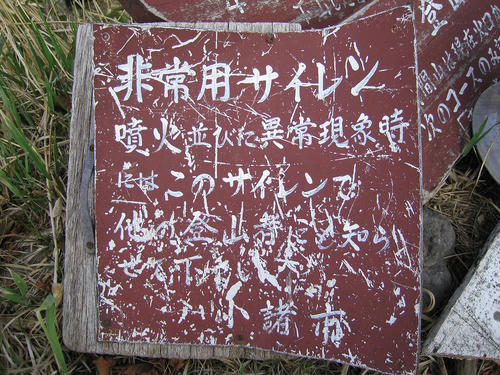 非常用サイレン
噴火並びに異常現象時
にはこのサイレンで
他の登山者にも知らせ
せて下さい
小諸市
登
間山は現在火口
次のコースの